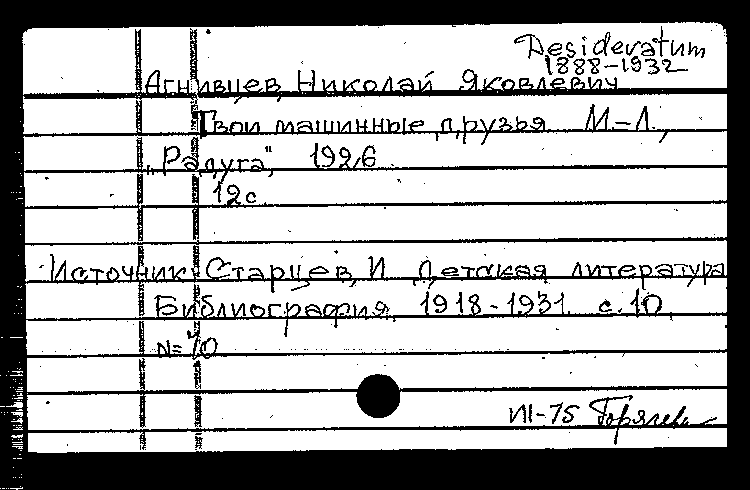 Desideratum
1888-1932
Агнивцев, Николай Яковлевич
Твои машинные друзья М-Л.,
"Радуга", 1926
12с
Источник: Старцев, И. Детская литература
Библиография. 1918-1931. с. 10,
N=70
VII-75 Горячева